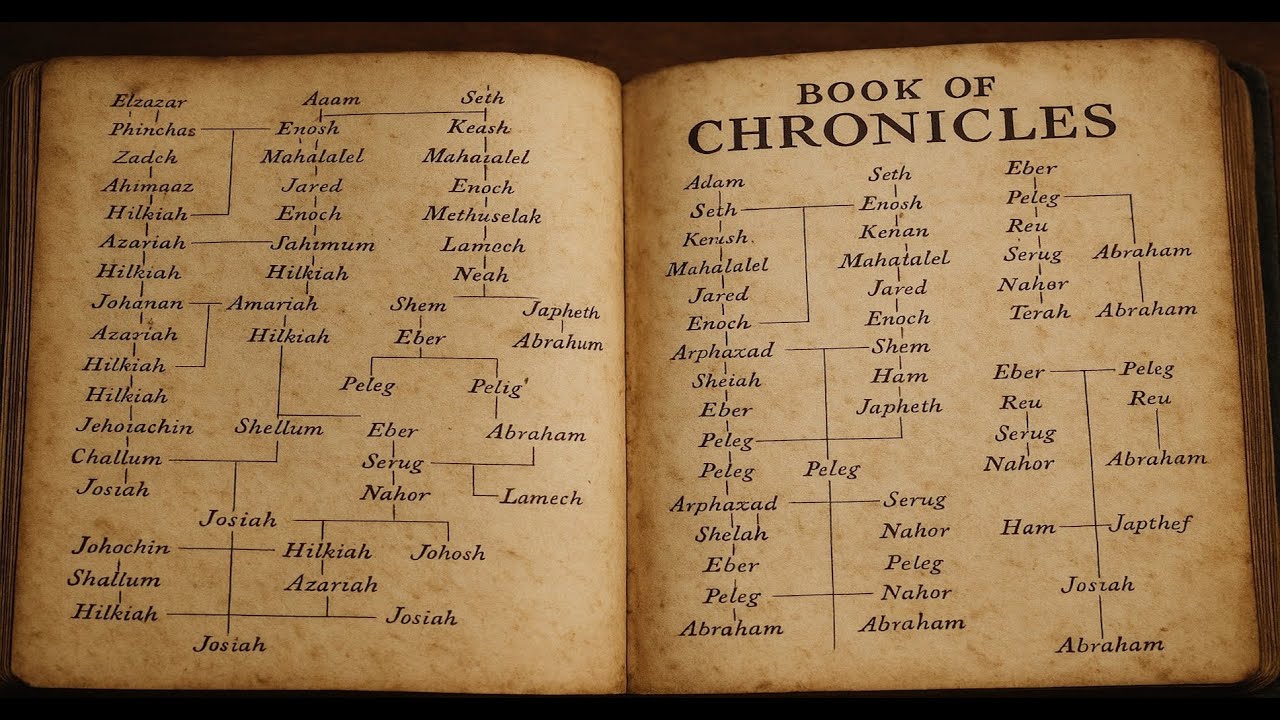 Elzazar
Phinchas
Zadch
Ahimaaz
Hilkiah
Azariah
Hilkiah
Johanan
Azariah
Hilkiah
Hilkiah
Jehoiachin
Challum
Josiah
Aaam
Enosh
Mahalalel
Jared
Enoch
Sahimum
Hilkiah
Amariah
Hilkiah
Shellum
Seth
Keash
Mahazalel
Enoch
Methuselak
Lamech
Neah
Shem
Eber
Japheth
Abrahum
Peleg
Pelig'
Eber
Abraham
Serug
Nahor
Lamech
Josiah
Johochin
Shallum
Hilkiah
Hilkiah
Azariah
Johosh
Josiah
Josiah
BOOK OF
CHRONICLES
Adam
Seth
Kenush.
Mahalalel
Jared
Enoch
Arphaxad
Sheiah
Eber
Peleg
Peleg
Arphaxad
Shelah
Eber
Peleg
Abraham
Seth
Enosh
Kenan
Mahatalel
Jared
Enoch
Shem
Ham
Japheth
Peleg
Serug
Nahor
Peleg
Nahor
Abraham
Eber
Peleg
Reu
Serug
Nahor
Terah
Abraham
Abraham
Eber
Reu
Serug
Nahor
Peleg
Reu
Abraham
Ham
Japthef
Josiah
Abraham